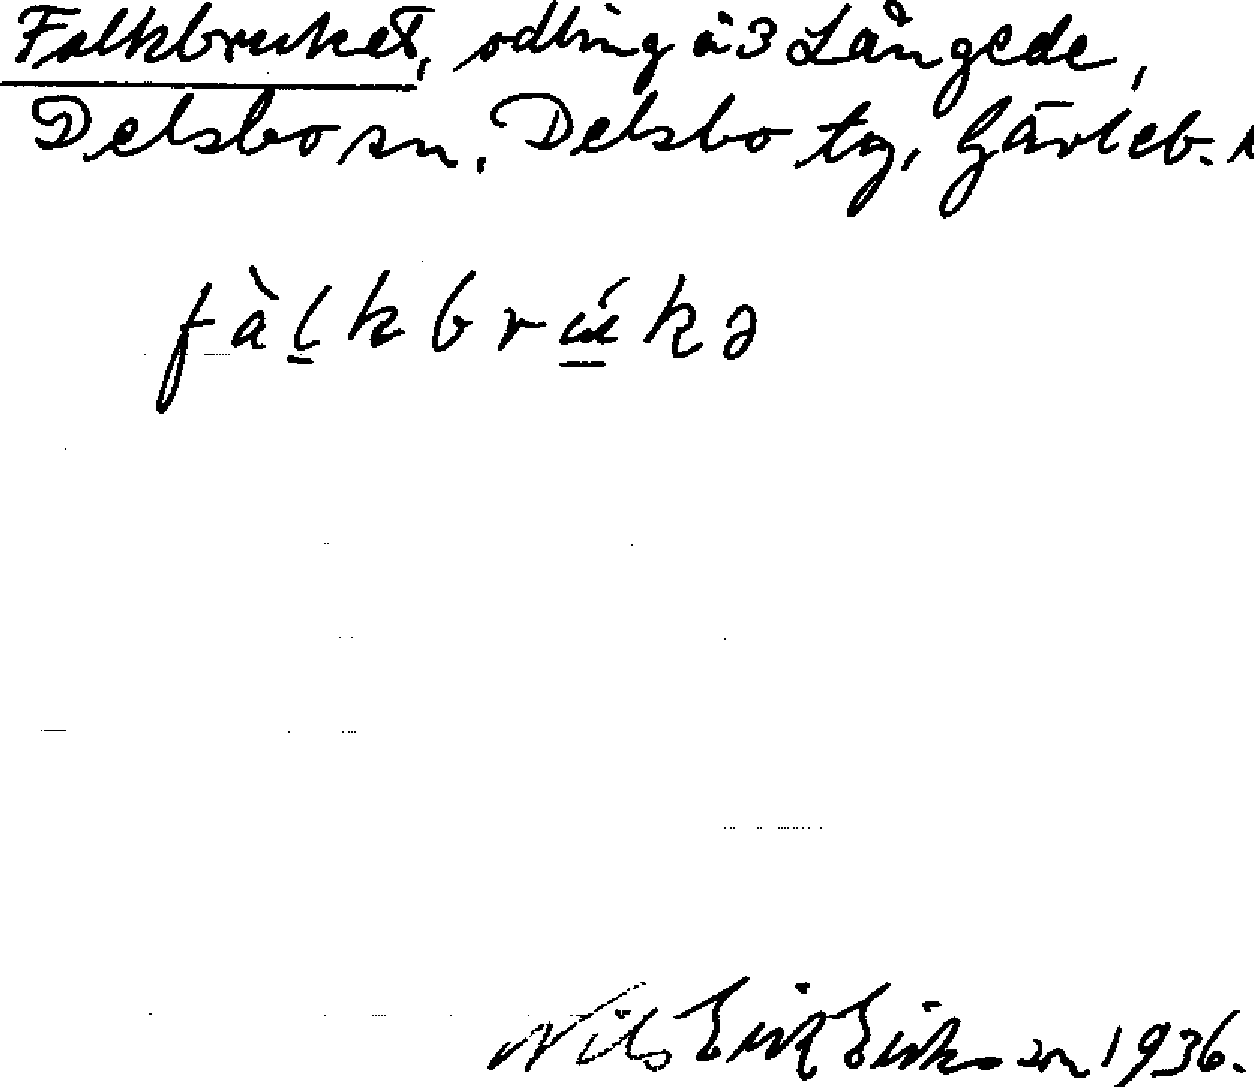 Falkbruket, odling å 3 Långede,
Delsbo sn, Delsbo tg, Gävleb. l
fàl̠kbrú̠kə
Nils Erik Eriksson 1936.